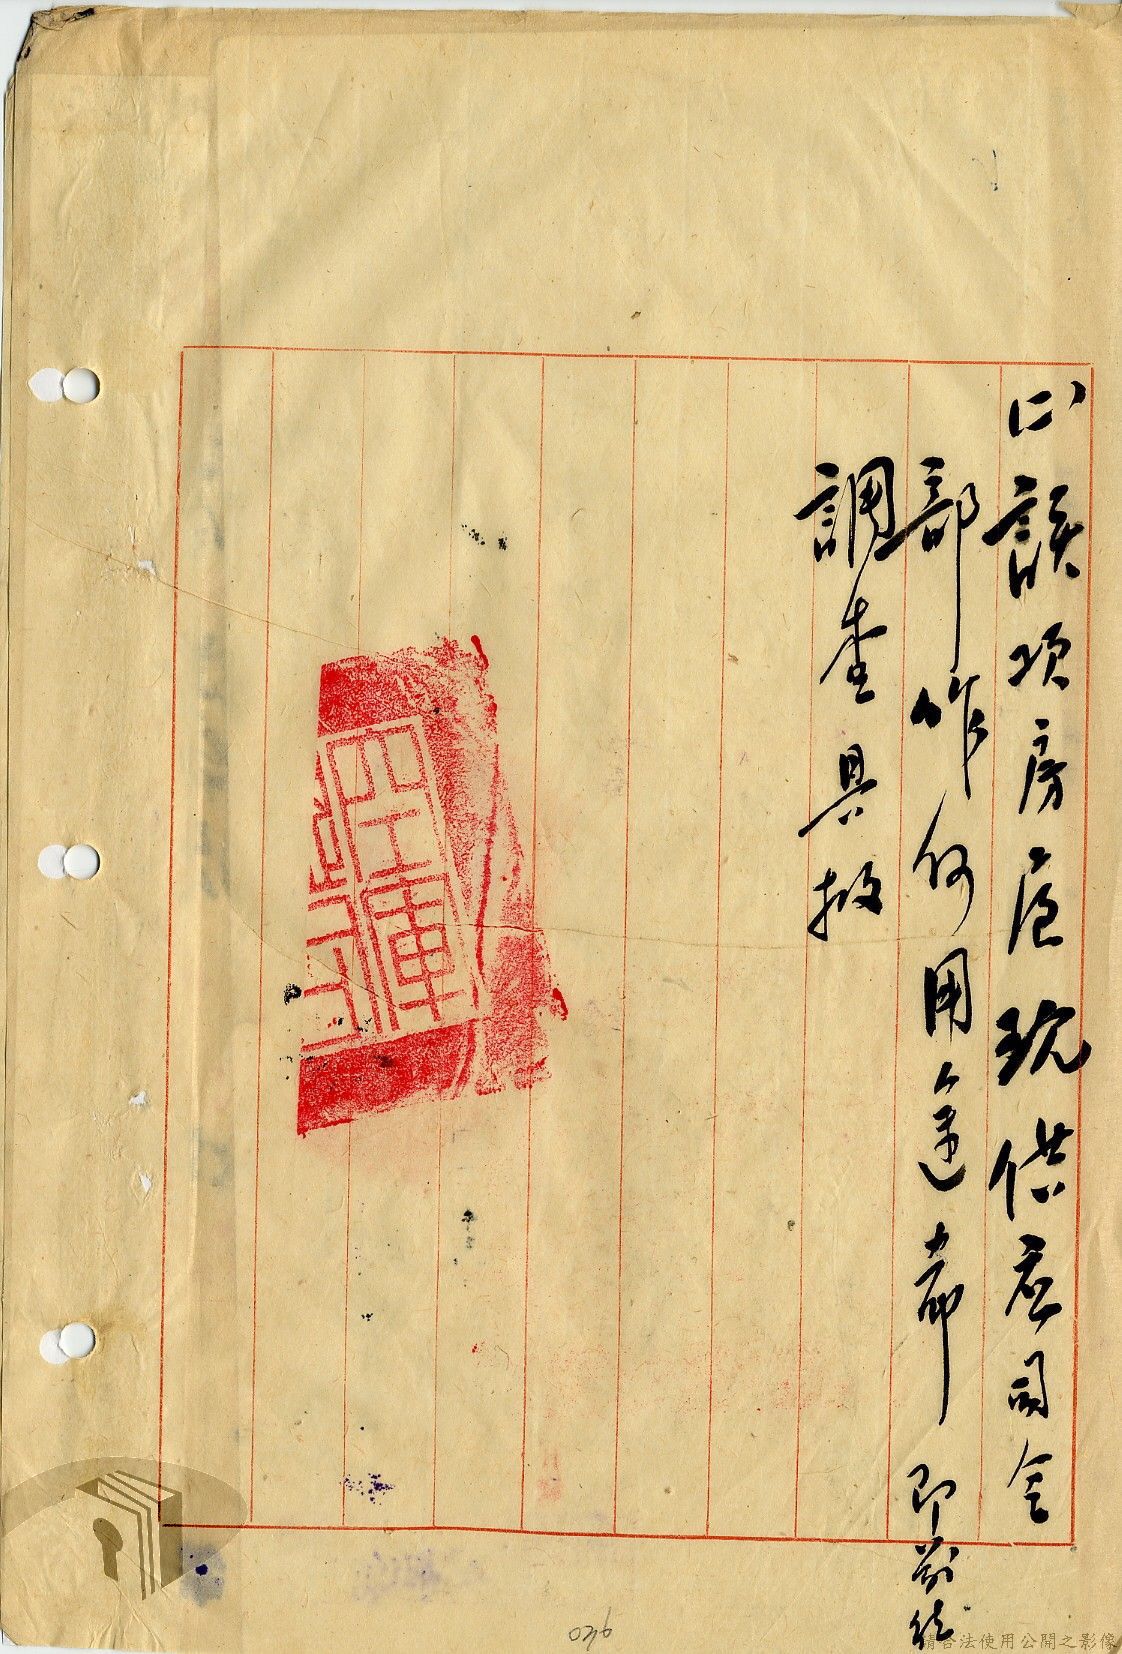 以該項房屋現供应司令
部作何用途希即前往
調查具報
026
請合法使用公開之影像